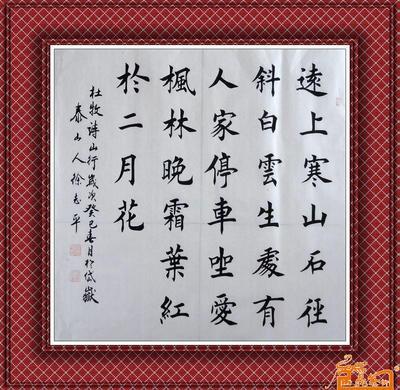 遠上寒山石徑
斜白雲生處有
人家停車坐愛
楓林晚霜葉紅
於二月花
杜牧詩山行歲次癸巳春月於岱嶽
泰山人徐志平